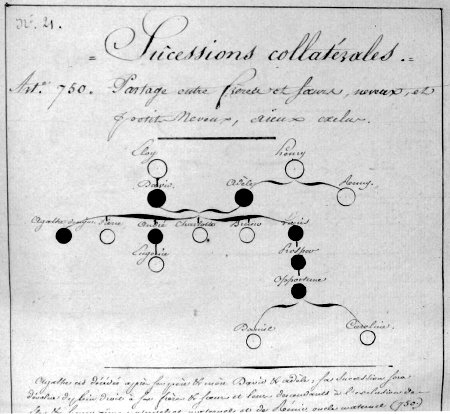 N.º 21.
= Successions collatérales. =
Art.º 750. Partage entre frères et sœurs, neveux, et
petits Neveux, aïeux exclus.
Eloy Henry
David Adèle Henry
Agathe Pierre André Charlotte Bruno Louis
Eugénie Prosper
Opportune
Daniel Caroline
Agathe est décédée après son père & mère David & Adèle; sa Succession sera
dévolue de plein droit à ses frères & sœurs et leurs descendants à l'exclusion de
maternel (750.)